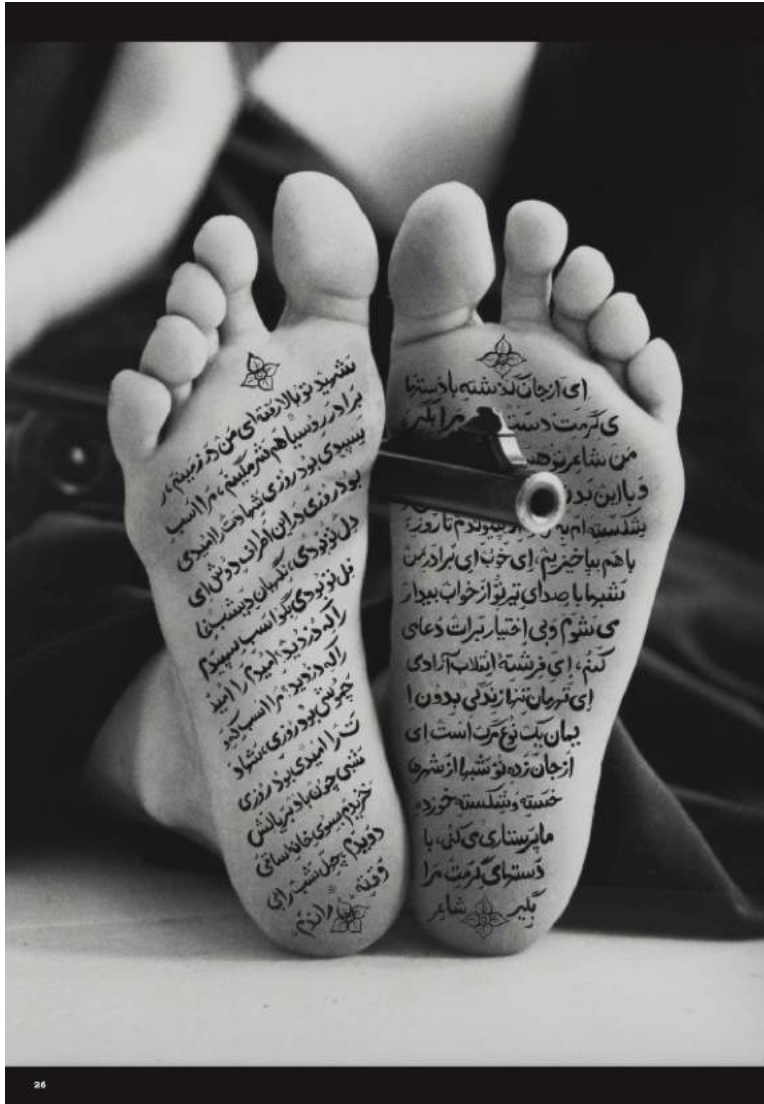 ای ازجان گذشته با دستها
ی گرمت دست مرا بگیر
من شاعر تو
و با این بدن
شکسته ام پیوندم تا روزی
با هم بپاخیزیم، ای خوب ای برادر من
شبها با صدای تیر تو از خواب بیدار
می شوم و بی اختیار برات دعا می
کنم، ای فرشته انقلاب آزادی
ای قهرمان تنها زندگی بدون ا
یمان یک نوع مرگ است ای
از جان زده تو شبها از شهرها
خسته و شکسته خورده
ما پرستاری می کنی، با
دستهای گرمت مرا
بگیر شاعر
شهید تو بالا رفته ای من در زمینم، ر
برادر روسیاهم شرمگینم، مرا اسب
سپیدی بود روزی شهادت را امیدی
بود روزی در این اطراف دوش ای
دل تو بودی، نگهبان دیشب
تو بودی بگو اسب سپیدم
را که دزدید، امیدم را امید
را که دزدید، مرا اسب
چموشی بود روزی، شهاد
ت را امیدی بود روزی
شبی چون باد بر یالش
خزیدم بسوی خانه ساقی
دویدم، چهل شب را بی
وقفه راندم
26